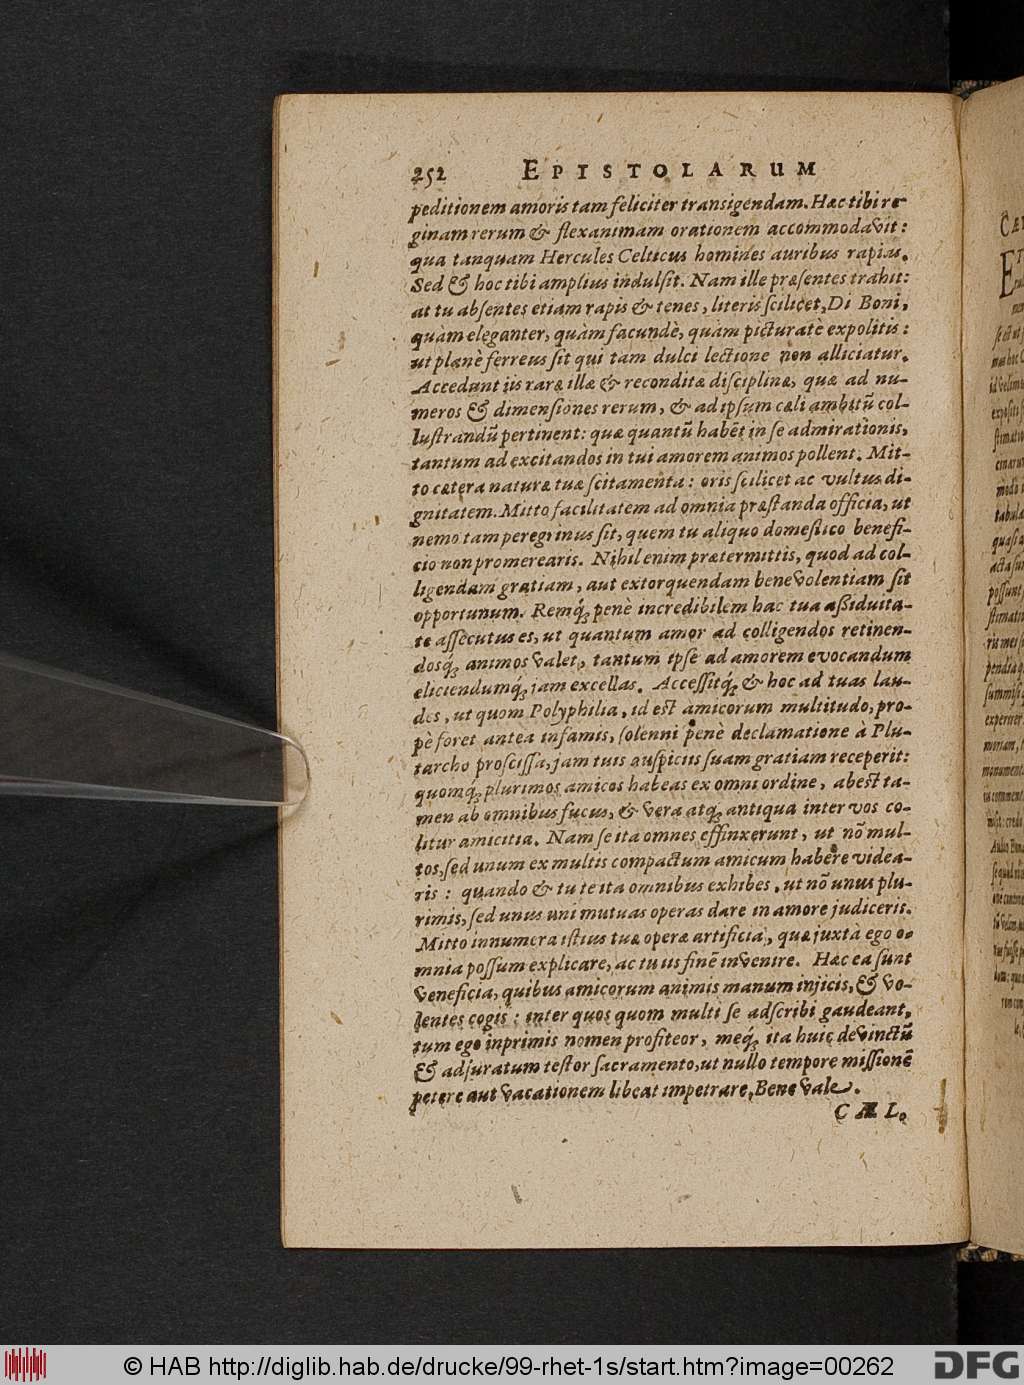 252 EPISTOLARUM
peditionem amoris tam feliciter transigendam. Hæc tibi re-
ginam rerum & flexanimam orationem accommodavit:
qua tanquam Hercules Celticus homines auribus rapias.
Sed & hoc tibi amplius indulsit. Nam ille præsentes trahit:
at tu absentes etiam rapis & tenes, literis scilicet, Di Boni,
quàm eleganter, quàm facundè, quàm picturatè expolitis:
ut planè ferreus sit qui tam dulci lectione non alliciatur.
Accedunt iis raræ illæ & reconditæ disciplinæ, quæ ad nu-
meros & dimensiones rerum, & ad ipsum cæli ambitũ col-
lustrandũ pertinent: quæ quantũ habẽt in se admirationis,
tantum ad excitandos in tui amorem animos pollent. Mit-
to cætera naturæ tuæ scitamenta: oris scilicet ac vultus di-
gnitatem. Mitto facilitatem ad omnia præstanda officia, ut
nemo tam peregrinus sit, quem tu aliquo domestico benefi-
cio non promerearis. Nihil enim prætermittis, quod ad col-
ligendam gratiam, aut extorquendam benevolentiam sit
opportunum. Remq́; penè incredibilem hac tua aßiduita-
te assecutus es, ut quantum amor ad colligendos retinen-
dosq́; animos valet, tantum ipse ad amorem evocandum
eliciendumq́; jam excellas. Accessitq́; & hoc ad tuas lau-
des, ut quom Polyphilia, id est amicorum multitudo, pro-
pè foret antea infamis, solenni penè declamatione à Plu-
tarcho proscissa, jam tuis auspiciis suam gratiam receperit:
quomq́; plurimos amicos habeas ex omni ordine, abest ta-
men ab omnibus fucus, & vera atq́; antiqua inter vos co-
litur amicitia. Nam se ita omnes effinxerunt, ut nõ mul-
tos, sed unum ex multis compactum amicum habere videa-
ris: quando & tu te ita omnibus exhibes, ut nõ unus plu-
rimis, sed unus uni mutuas operas dare in amore judiceris.
Mitto innumera istius tuæ operæ artificia, quæ juxtà ego o-
mnia possum explicare, ac tu iis finẽ invenire. Hæc ea sunt
veneficia, quibus amicorum animis manum injicis, & vo-
lentes cogis: inter quos quom multi se adscribi gaudeant,
tum ego inprimis nomen profiteor, meq́; ita huic devinctũ
& adjuratum testor sacramento, ut nullo tempore missionẽ
petere aut vacationem libeat impetrare, Bene vale.
CÆL.
© HAB http://diglib.hab.de/drucke/99-rhet-1s/start.htm?image=00262
DFG